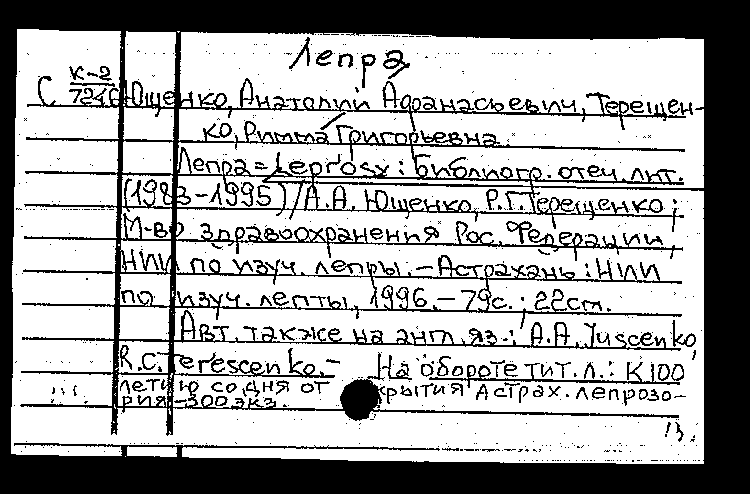 Лепра
С К-2
7240 Ющенко, Анатолий Афанасьевич, Терещен-
ко, Римма Григорьевна.
Лепра = Leprosy : библиогр. отеч. лит.
(1983-1995) / А.А. Ющенко, Р.Г. Терещенко ;
М-во здравоохранения Рос. Федерации,
НИИ по изуч. лепры. - Астрахань : НИИ
по изуч. лепты, 1996. - 79с. ; 22см.
Авт. также на англ. яз.: A.A. Juscenko,
R.C. Terescenko. - На обороте тит. л.: К 100
летию со дня от крытия Астрах. лепрозо-
рия - 300 экз.